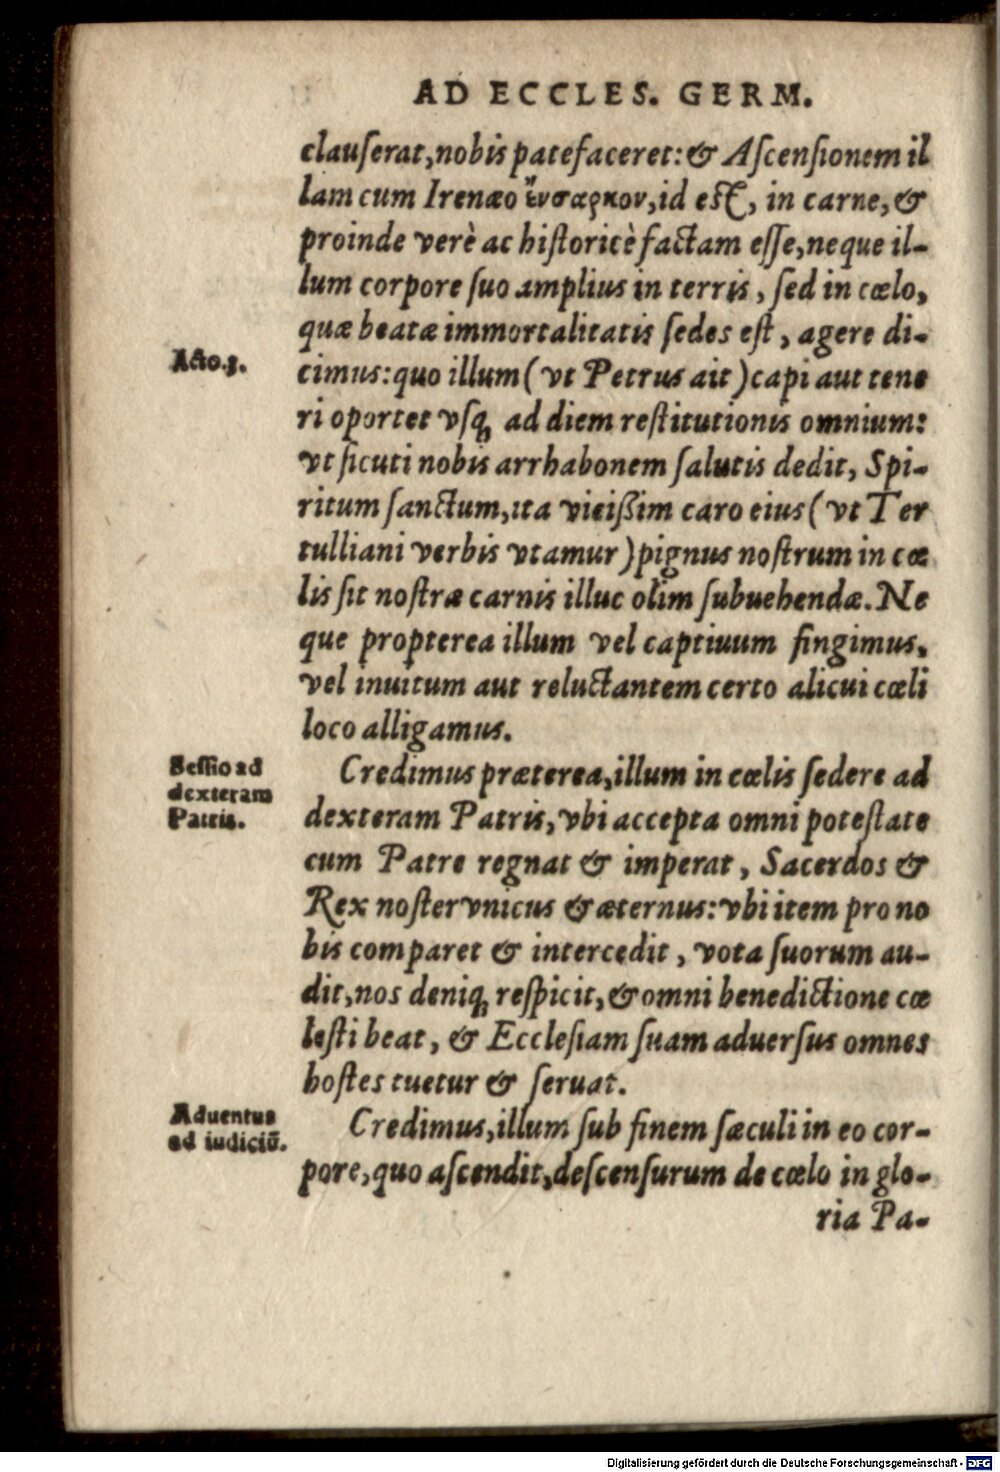 AD ECCLES. GERM.
clauſerat,nobis patefaceret:& Aſcenſionem il
lam cum Irenæo ἔνσαρκον,id eſt, in carne, &
proinde verè ac hiſtoricè factam eſſe,neque il-
lum corpore ſuo amplius in terris, ſed in cœlo,
quæ beatæ immortalitatis ſedes eſt, agere di-
Acto.3.
cimus:quo illum (vt Petrus ait) capi aut tene
ri oportet vſq; ad diem reſtitutionis omnium:
vt ſicuti nobis arrhabonem ſalutis dedit, Spi-
ritum ſanctum,ita vicißim caro eius (vt Ter
tulliani verbis vtamur) pignus noſtrum in cœ
lis ſit noſtræ carnis illuc olim ſubuehendæ. Ne
que propterea illum vel captiuum fingimus,
vel inuitum aut reluctantem certo alicui cœli
loco alligamus.
Seſſio ad
dexteram
Patris.
Credimus præterea,illum in cœlis ſedere ad
dexteram Patris,vbi accepta omni poteſtate
cum Patre regnat & imperat, Sacerdos &
Rex noſter vnicus & æternus:vbi item pro no
bis comparet & intercedit, vota ſuorum au-
dit,nos deniq; reſpicit,& omni benedictione cœ
leſti beat, & Eccleſiam ſuam aduerſus omnes
hoſtes tuetur & ſeruat.
Aduentus
ad iudiciũ.
Credimus,illum ſub finem ſæculi in eo cor-
pore,quo aſcendit,deſcenſurum de cœlo in glo-
ria Pa-
Digitalisierung gefördert durch die Deutsche Forschungsgemeinschaft - DFG